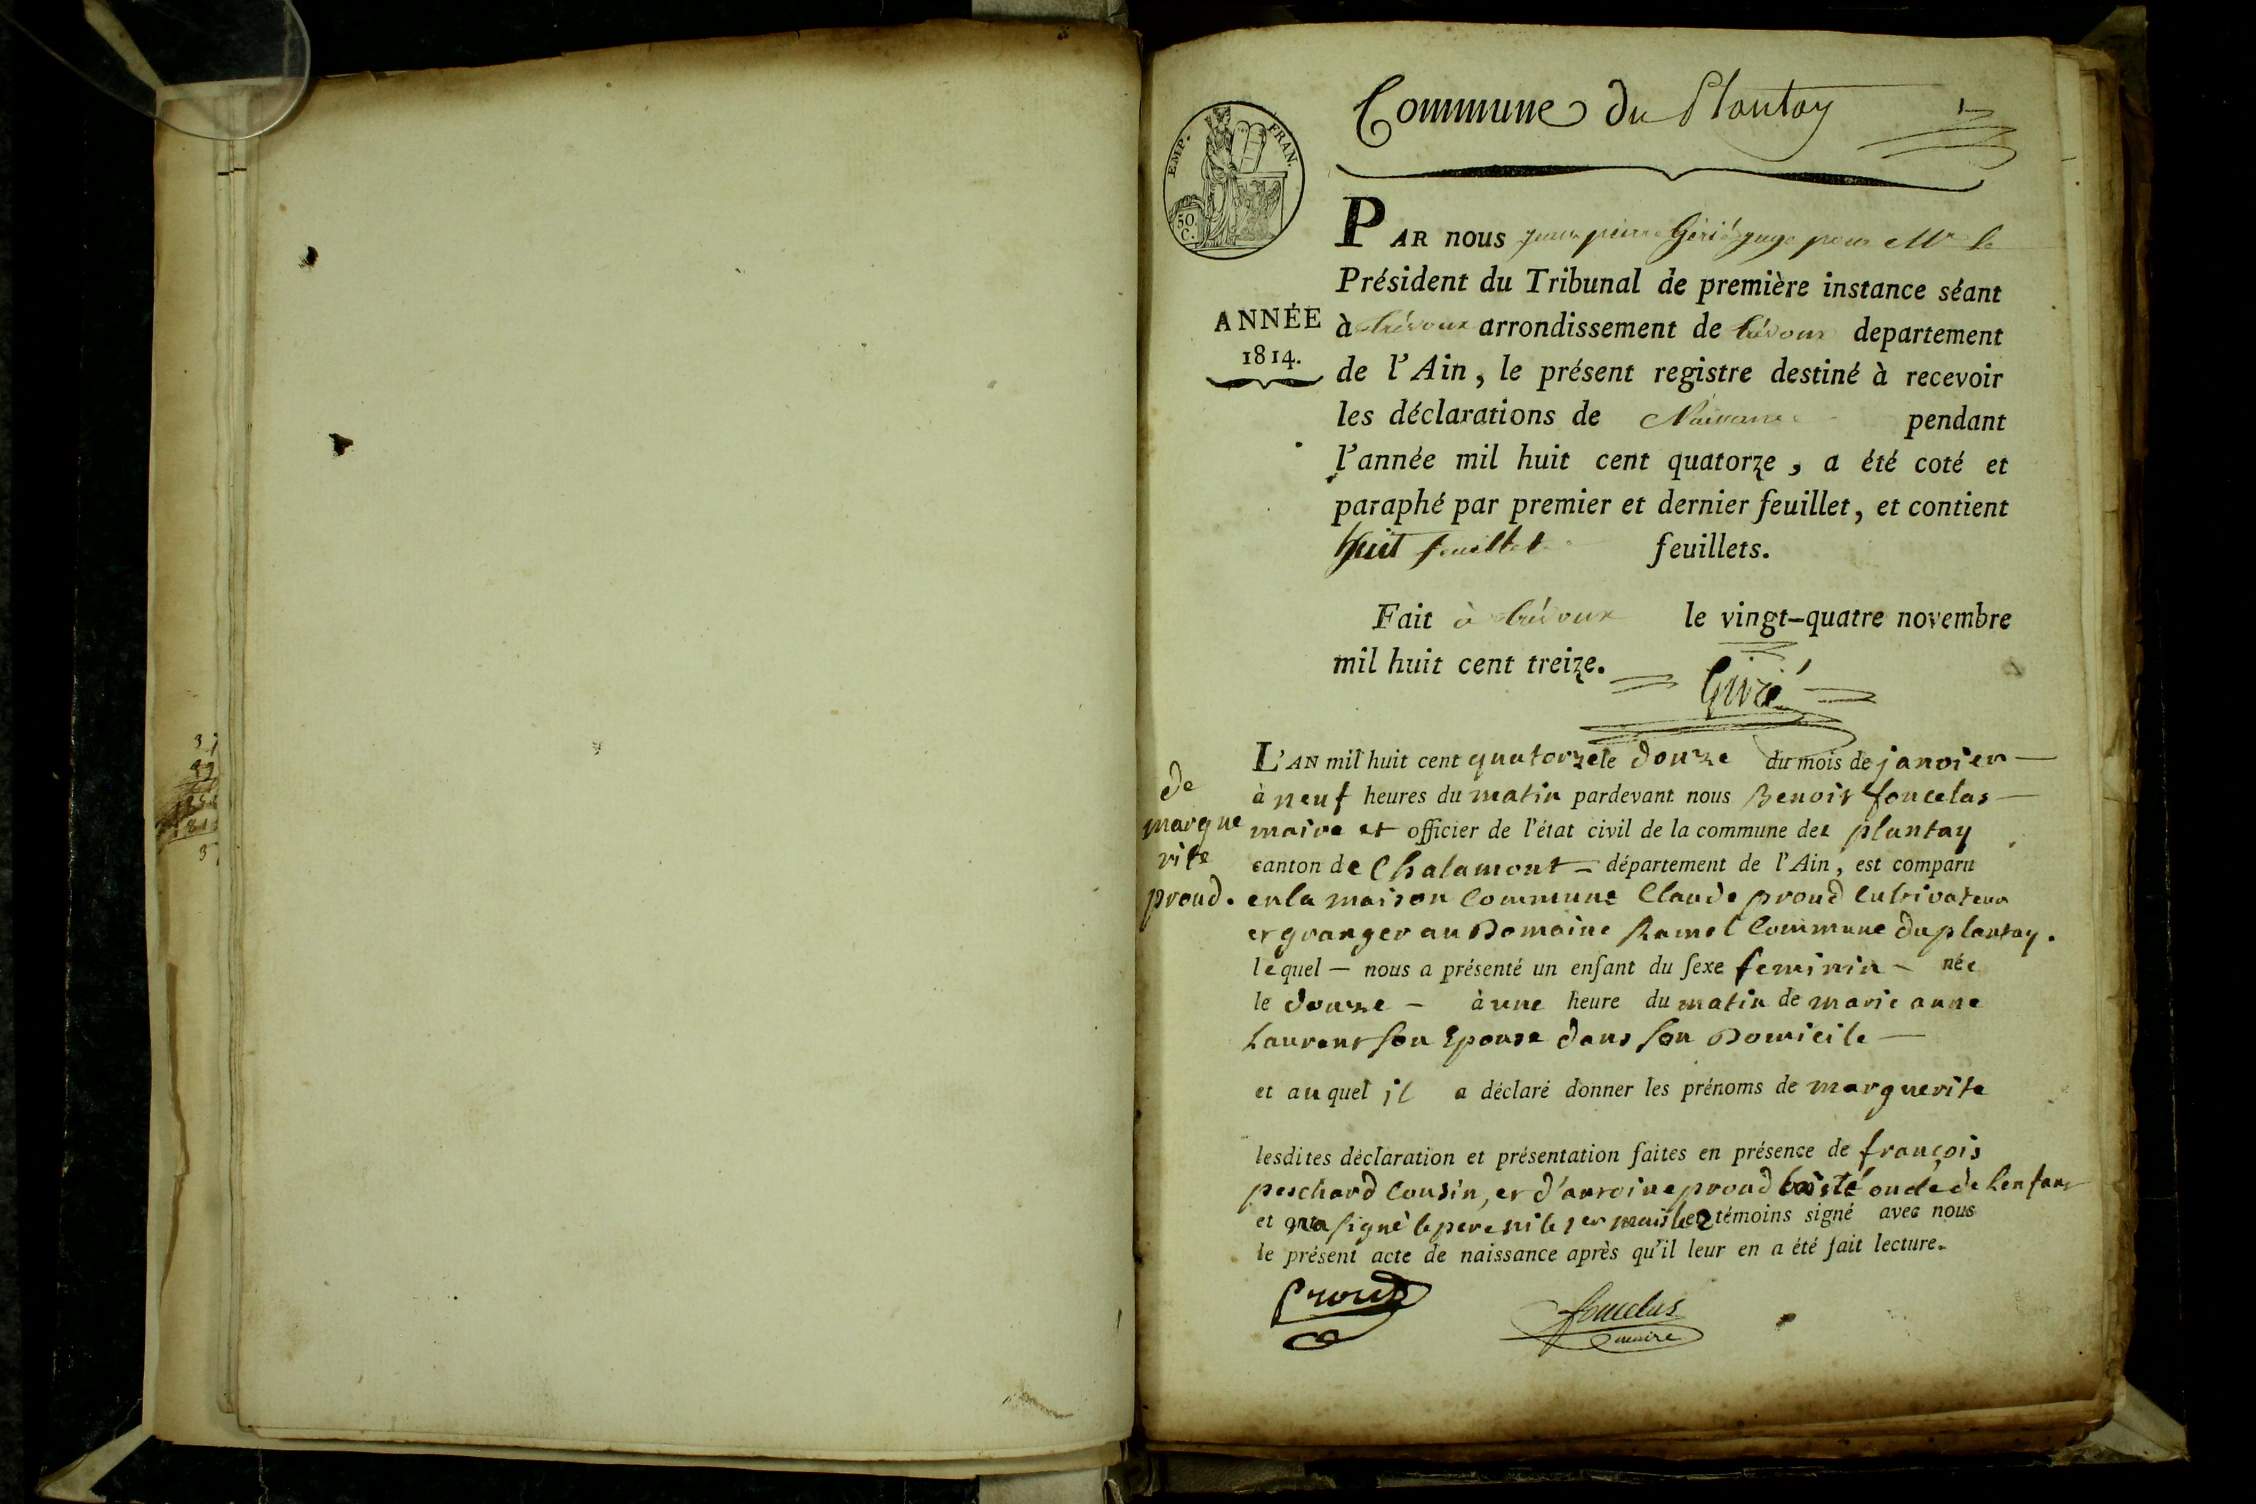 Commune du Plantay
1
EMP. FRAN.
50 C.
PAR nous jean pierre Girié juge pour Mr le
Président du Tribunal de première instance séant
ANNÉE
1814.
à trévoux arrondissement de trévoux departement
de l'Ain, le présent registre destiné à recevoir
les déclarations de Naissance pendant
l'année mil huit cent quatorze, a été coté et
paraphé par premier et dernier feuillet, et contient
huit feuillets feuillets.
Fait à trévoux le vingt-quatre novembre
mil huit cent treize.
Girié
de
marque
rite
proud.
L'AN mil huit cent quatorze le douze du mois de janvier —
à neuf heures du matin pardevant nous Benoit foucelas —
maire et officier de l'état civil de la commune de plantay
canton de Chalamont — département de l'Ain, est comparu
en la maison Commune Claude proud Cultivateur
et granger au Domaine Ramel Commune du plantay.
lequel — nous a présenté un enfant du sexe feminin — née
le douze — à une heure du matin de marie anne
Laurent son Epouse dans son Domicile —
et auquel il a déclaré donner les prénoms de marguerite
lesdites déclaration et présentation faites en présence de françois
peschard Cousin, et d'antoine proud oncle de Lenfant
et n'a signé le pere ni le 1er mais le 2 témoins signé avec nous
le présent acte de naissance après qu'il leur en a été fait lecture.
Proud
foucelas
maire